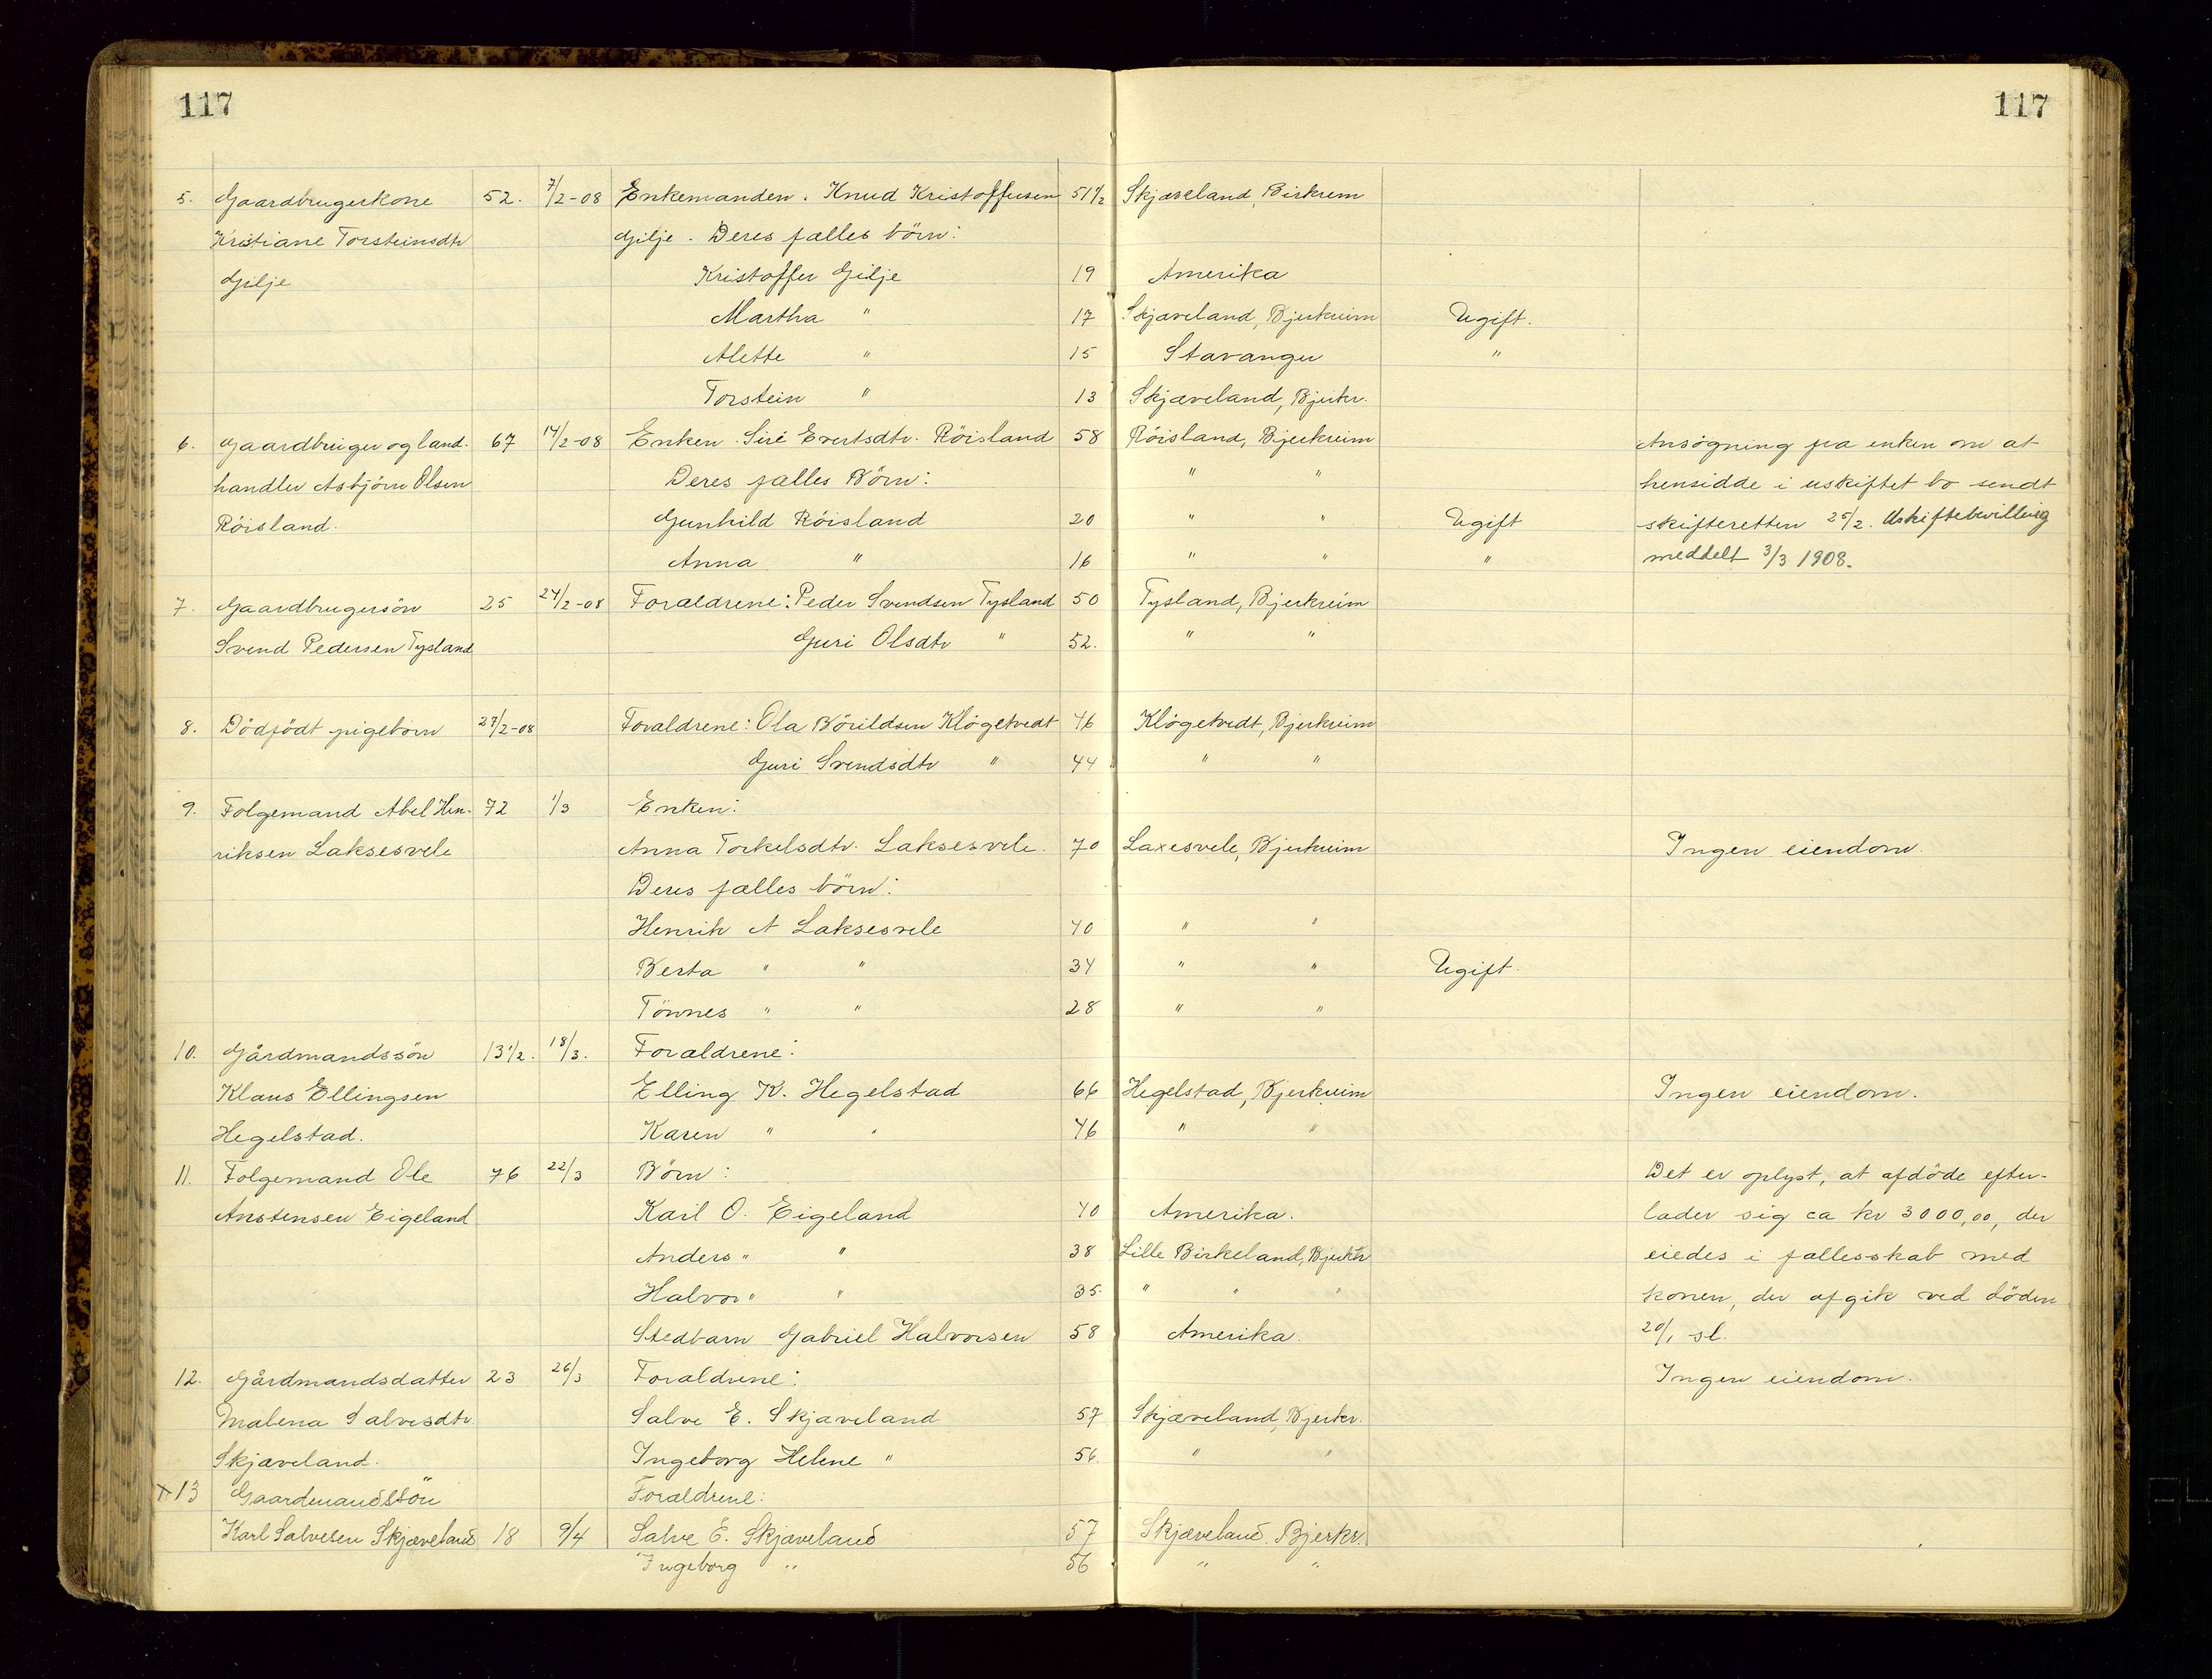 117
117
5. Gaardbrugerkone 52. 7/2-08 Enkemanden. Knud Kristoffersen 51 1/2 Skjæveland, Birkrem
Kristiane Torsteinsdtr Gilje. Deres fælles börn:
Gilje Kristoffer Gilje 19 Amerika
Martha " 17 Skjæveland, Bjerkreim Ugift.
Alette " 15 Stavanger "
Torstein " 13 Skjæveland, Bjerkr.
6. Gaardbruger og land- 67 14/2-08 Enken. Siri Evertsdtr. Röisland 58 Röisland, Bjerkreim Ansögning fra enken om at
handler Asbjörn Olsen Deres fælles Börn: " " hensidde i uskiftet bo sendt
Röisland. Gunhild Röisland 20 " " Ugift skifteretten 25/2. Uskiftebevilling
Anna " 16 " " " meddelt 3/3 1908.
7. Gaardbrugersön 25 24/2-08 Forældrene: Peder Svendsen Tysland 50 Tysland, Bjerkreim
Svend Pedersen Tysland Guri Olsdtr " 52. " "
8. Dödfödt pigebarn 27/2-08 Forældrene: Ola Böreldsen Klögetvedt 46 Klögetvedt, Bjerkreim
Guri Svendsdtr " 44 " "
9. Folgemand Abel Hen- 72 1/3 Enken:
riksen Laksesvele Anna Torkelsdtr. Laksesvele. 70 Laxesvele, Bjerkreim Ingen eiendom.
Deres fælles börn:
Henrik A Laksesvele 40 " "
Berta " " 34 " " Ugift.
Tönnes " " 28 " "
10. Gårdmandssön 13 1/2. 18/3. Forældrene:
Klaus Ellingsen Elling K. Hegelstad 66 Hegelstad, Bjerkreim Ingen eiendom.
Hegelstad. Karen " " 46 " "
11. Folgemand Ole 76 22/3 Börn: Det er oplyst, at afdöde efter-
Anstensen Eigeland Karl O. Eigeland 40 Amerika. lader sig ca kr 3000,00, der
Anders " " 38 Lille Birkeland, Bjerkr eiedes i fællesskab med
Halvor " " 35. " " " konen, der afgik ved döden
Stedbarn Gabriel Halvorsen 58 Amerika. 20/1 sl.
12. Gårdmandsdatter 23 26/3 Forældrene: Ingen eiendom.
Malena Salvesdtr. Salve E. Skjæveland 57 Skjæveland, Bjerkr.
Skjæveland. Ingeborg Helene " 56. " "
x 13 Gaardmandssön Forældrene:
Karl Salvesen Skjæveland 18 9/4 Salve E. Skjæveland 57 Skjæveland. Bjerkr.
Ingeborg " 56 " "